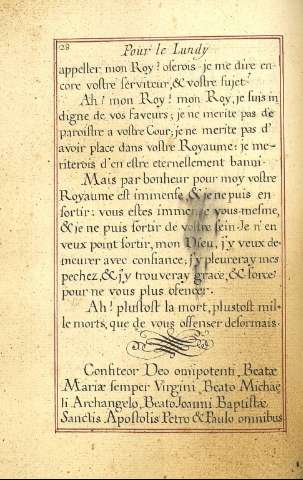 28
Pour le Lundy
appeller mon Roy? oserois-je me dire en-
core vostre serviteur, & vostre sujet?
Ah! mon Roy! mon Roy, je suis in
digne de vos faveurs; je ne merite pas de
paroistre a vostre Cour; je ne merite pas d'
avoir place dans vostre Royaume: je me-
riterois d'en estre eternellement banni.
Mais par bonheur pour moy vostre
Royaume est immense & je ne puis en
sortir: vous estes immense vous-mesme,
& je ne puis sortir de vostre sein. Je n'en
veux point sortir, mon Dieu, j'y veux de-
meurer avec confiance; j'y pleureray mes
pechez, & j'y trouveray grace, & force
pour ne vous plus ofencer.
Ah! plustost la mort, plustost mil-
le morts, que de vous offenser desormais.
Confiteor Deo omipotenti, Beatæ
Mariæ semper Virgini, Beato Michae
li Archangelo, Beato Joanni Baptistæ,
Sanctis Apostolis Petro & Paulo omnibus